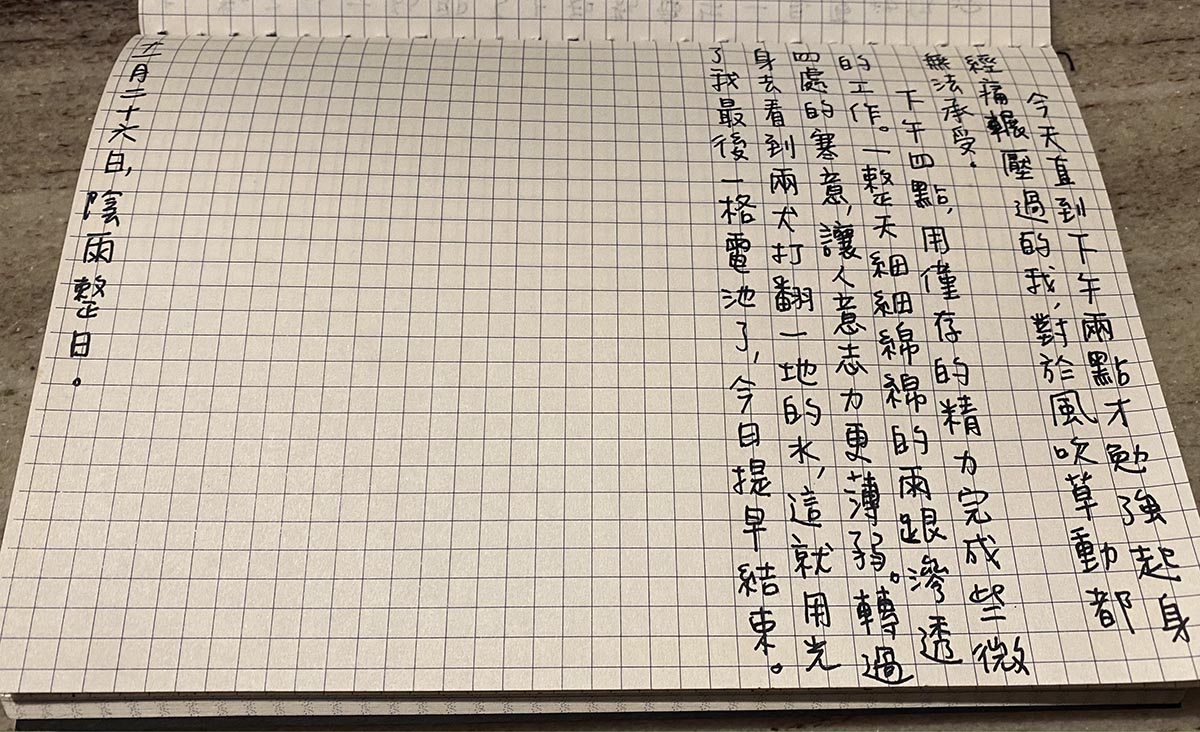 今天直到下午兩點才勉強起身
經痛輾壓過的我,對於風吹草動都
無法承受。
下午四點,用僅存的精力完成些微
的工作。一整天細細綿綿的雨跟滲透
四處的寒意,讓人意志力更薄弱。轉過
身去看到兩犬打翻一地的水,這就用光
了我最後一格電池了,今日提早結束。
十一月二十六日,陰雨整日。